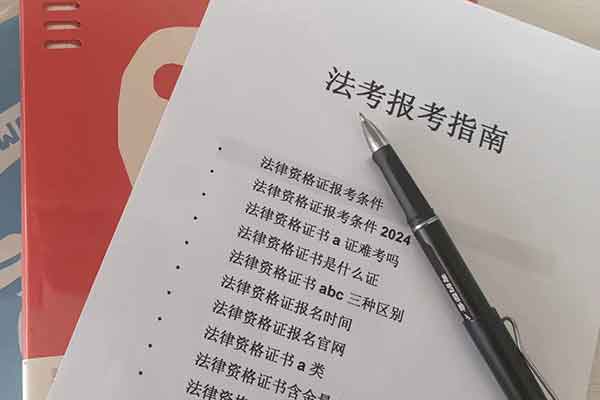 法考报考指南
法律资格证报考条件
法律资格证报考条件 2024
法律资格证书 a 证难考吗
法律资格证书是什么证
法律资格证书 abc 三种区别
法律资格证报名时间
法律资格证报名官网
法律资格证书 a 类
法律资格证书含金量
法律资格证